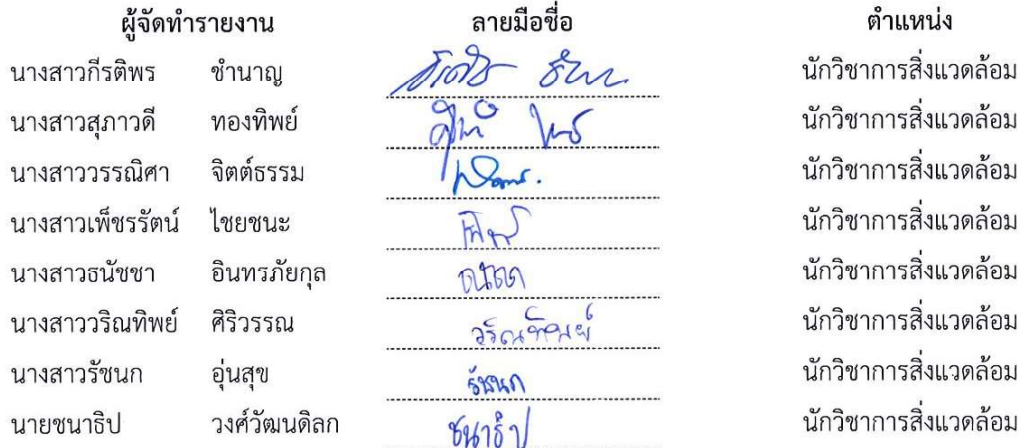 ผู้จัดทำรายงาน ลายมือชื่อ ตำแหน่ง
นางสาวกีรติพร ชำนาญ นักวิชาการสิ่งแวดล้อม
นางสาวสุภาวดี ทองทิพย์ นักวิชาการสิ่งแวดล้อม
นางสาววรรณิศา จิตต์ธรรม นักวิชาการสิ่งแวดล้อม
นางสาวเพ็ชรรัตน์ ไชยชนะ นักวิชาการสิ่งแวดล้อม
นางสาวธนัชชา อินทรภัยกุล นักวิชาการสิ่งแวดล้อม
นางสาววริณทิพย์ ศิริวรรณ วริณทิพย์ นักวิชาการสิ่งแวดล้อม
นางสาวรัชนก อุ่นสุข รัชนก นักวิชาการสิ่งแวดล้อม
นายชนาธิป วงศ์วัฒนดิลก ชนาธิป นักวิชาการสิ่งแวดล้อม